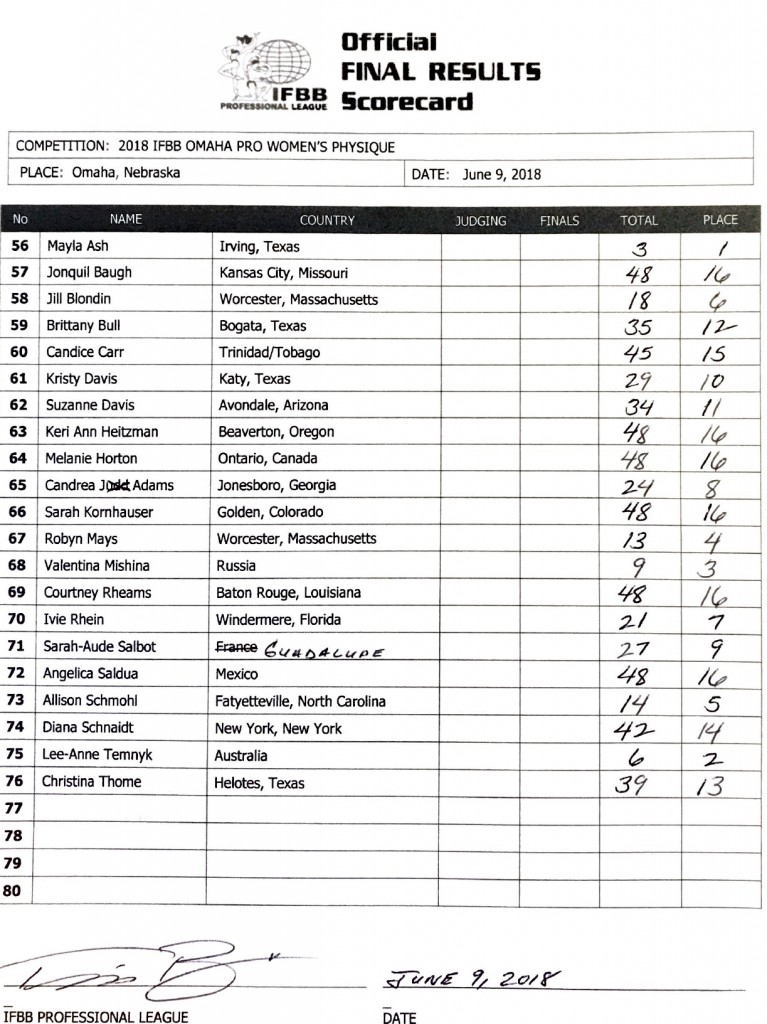 Official
FINAL RESULTS
Scorecard
IFBB
PROFESSIONAL LEAGUE
COMPETITION: 2018 IFBB OMAHA PRO WOMEN'S PHYSIQUE
PLACE: Omaha, Nebraska DATE: June 9, 2018
No NAME COUNTRY JUDGING FINALS TOTAL PLACE
56 Mayla Ash Irving, Texas 3 1
57 Jonquil Baugh Kansas City, Missouri 48 16
58 Jill Blondin Worcester, Massachusetts 18 6
59 Brittany Bull Bogata, Texas 35 12
60 Candice Carr Trinidad/Tobago 45 15
61 Kristy Davis Katy, Texas 29 10
62 Suzanne Davis Avondale, Arizona 34 11
63 Keri Ann Heitzman Beaverton, Oregon 48 16
64 Melanie Horton Ontario, Canada 48 16
65 Candrea Adams Jonesboro, Georgia 24 8
66 Sarah Kornhauser Golden, Colorado 48 16
67 Robyn Mays Worcester, Massachusetts 13 4
68 Valentina Mishina Russia 9 3
69 Courtney Rheams Baton Rouge, Louisiana 48 16
70 Ivie Rhein Windermere, Florida 21 7
71 Sarah-Aude Salbot France GUADALUPE 27 9
72 Angelica Saldua Mexico 48 16
73 Allison Schmohl Fatyetteville, North Carolina 14 5
74 Diana Schnaidt New York, New York 42 14
75 Lee-Anne Temnyk Australia 6 2
76 Christina Thome Helotes, Texas 39 13
77
78
79
80
JUNE 9, 2018
IFBB PROFESSIONAL LEAGUE DATE